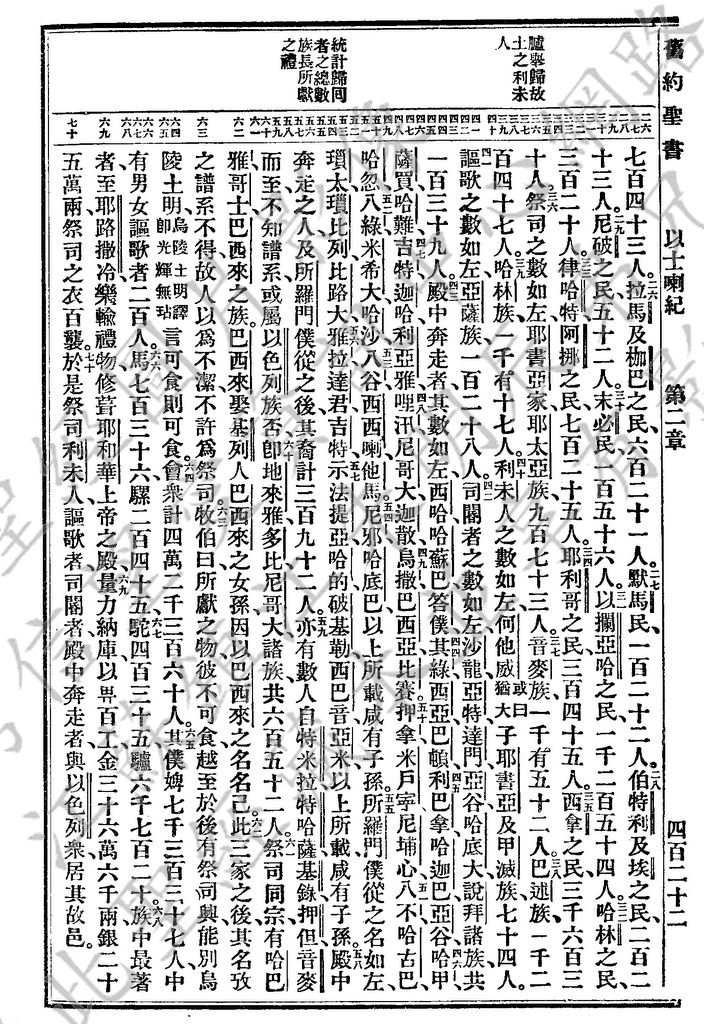 舊約聖書 以士喇紀 第二章 四百二十二
臚舉歸故土之利未人
統計歸囘者之總數族長所獻之禮
七百四十三人、拉馬及枷巴之民、六百二十一人、默馬民、一百二十二人、伯特利及埃之民、二百二
十三人、尼破之民、五十二人、末必民、一百五十六人、以攔亞哈之民、一千二百五十四人、哈林之民、
三百二十人、律哈特阿挪之民、七百二十五人、耶利哥之民、三百四十五人、西拿之民、三千六百三
十人。祭司之數如左、耶書亞家耶太亞族、九百七十三人、音麥族、一千有五十二人、巴述族、一千二
百四十七人、哈林族、一千有十七人。利未人之數如左、何他威或曰猶大子耶書亞及甲滅族、七十四人。
謳歌之數如左、亞薩族、一百二十八人。司閽者之數如左、沙龍、亞特、達門、亞谷、哈底大、說拜諸族、共
一百三十九人。殿中奔走者、其數如左、西哈、哈蘇巴、答僕、其綠、西亞、巴頓、利巴拿、哈迦巴、亞谷、哈甲
薩買、哈難、吉特、迦哈、利亞雅、哩汛、尼哥大、迦散、烏撒、巴西亞、比賽、押拿、米戶寕、尼埔心、八不、哈古巴
哈忽、八綠、米希大、哈沙、八谷、西西喇、他馬、尼邪、哈底巴、以上所載、咸有子孫。所羅門僕從之名如左、
瑣太、瑣比列、比路大、雅拉、達君、吉特、示法提亞、哈的、破基勒西巴音、亞米、以上所載、咸有子孫。殿中
奔走之人、及所羅門僕從之後裔、計三百九十二人。亦有數人、自特米拉、特哈薩、基錄、押但、音麥
而至、不知譜系、或屬以色列族否、卽地來雅、多比、尼哥大諸族、共六百五十二人。祭司同宗、有哈巴
雅、哥士、巴西來之族、巴西來娶基列人巴西來之女孫、因以巴西來之名名己、此三家之後、其名攷
之譜系不得、故人以爲不潔、不許爲祭司、牧伯曰、所獻之物、彼不可食、越至於後、有祭司興、能別烏
陵土明烏陵土明譯卽光輝無玷言可食則可食。會衆計四萬二千三百六十人。其僕婢七千三百三十七人、中
有男女謳歌者二百人。馬七百三十六、騾二百四十五、駝四百三十五、驢六千七百二十。族中最著
者、至耶路撒冷、樂輸禮物、修葺耶和華上帝之殿、量力納庫、以畀百工、金三十六萬六千兩、銀二十
五萬兩、祭司之衣百襲。於是祭司、利未人、謳歌者、司閽者、殿中奔走者、與以色列衆、居其故邑。